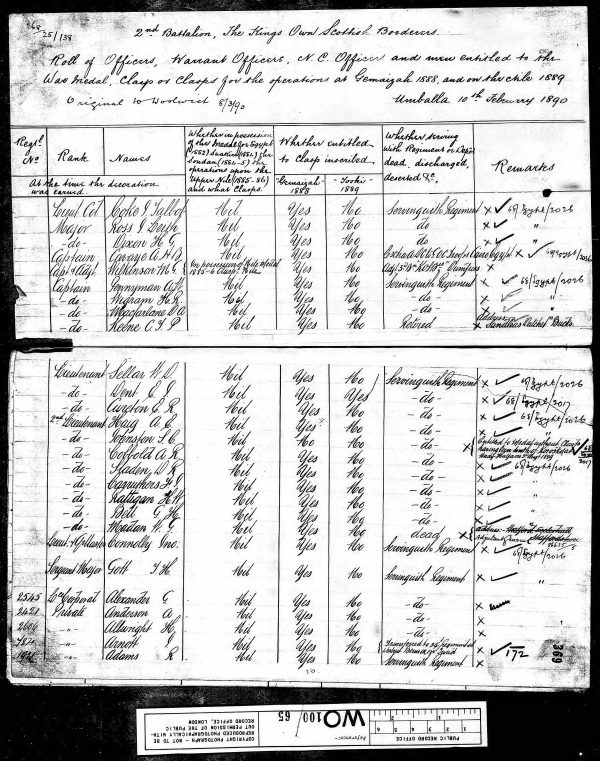 68/25/138
2nd Battalion, The Kings Own Scottish Borderers.
Roll of Officers, Warrant Officers, N.C. Officers and men entitled to the
War Medal, Clasp or Clasps for the operations at Gemaizah 1888, and on the Nile 1889
Original to Woolwich 8/3/90 Umballa 10th February 1890
Regtl No Rank Names Whether in possession of the Medal for Egypt (1882) Suakin (1884) the Soudan (1884-5) the operations upon the Upper Nile (1885-86) and what Clasps. Whether entitled to Clasp inscribed Whether serving with Regiment or Depôt dead, discharged, deserted &c. Remarks
At the time the decoration was earned. "Gemaizah" 1888 "Toski" 1889
Lieut Col Coke J Talbot Nil Yes No Serving with Regiment x ✓ 68/Egypt/2026
Major Ross J Leith Nil Yes No do x ✓ "
-do- Dixon H G Nil Yes No -do- x ✓ "
Captain A H B Nil Yes No x ✓
Capt & Adjt Wilkinson M G In possession of Nile Medal 1885-6 Clasp Nile Yes No x
Captain Pennyman A Nil Yes No Serving with Regiment x ✓ 68/Egypt/2026
-do- Wigram H R Nil Yes No -do- x ✓ "
-do- Macfarlane D A Nil Yes No -do- x ✓ "
-do- Keene C T P Nil Yes No Retired x
Lieutenant Sellar W D Nil Yes No Serving with Regiment x ✓ 68/Egypt/2026
-do- Dent C J Nil Yes Yes -do- x ✓ 68/Egypt/2017
-do- E R Nil Yes No -do- x ✓ 68/Egypt/2026
2nd Lieutenant Haig A E Nil Yes No -do- x ✓ "
-do- Nil No No -do- x
-do- A R Nil Yes No -do- x ✓ 68/Egypt/2026
-do- Sladen D R Nil Yes No -do- x ✓
-do- Carruthers Nil Yes No -do- x ✓ "
-do- Rattigan H W Nil Yes No -do- x ✓
-do- G Nil Yes No -do- x ✓ "
-do- W G Nil Yes No dead x
Lieut & Qr Master Connolly Jno. Nil Yes No Serving with Regiment x ✓ 68/Egypt/2026
Sergeant Major Gott T H. Nil Yes No Serving with Regiment x ✓ "
2545 Lce Corporal Alexander G Nil Yes No -do- x
2421 Private Anderson A Nil Yes No -do- x
" Allwright H Nil Yes No -do- x
" Arnott Nil Yes No x ✓ 172
" Adams R Nil Yes No Serving with Regiment x
369
PUBLIC RECORD OFFICE, LONDON
Reference:-
WO 100 / 65
COPYRIGHT PHOTOGRAPH - NOT TO BE
REPRODUCED PHOTOGRAPHICALLY WITH-
OUT PERMISSION OF THE PUBLIC
RECORD OFFICE, LONDON